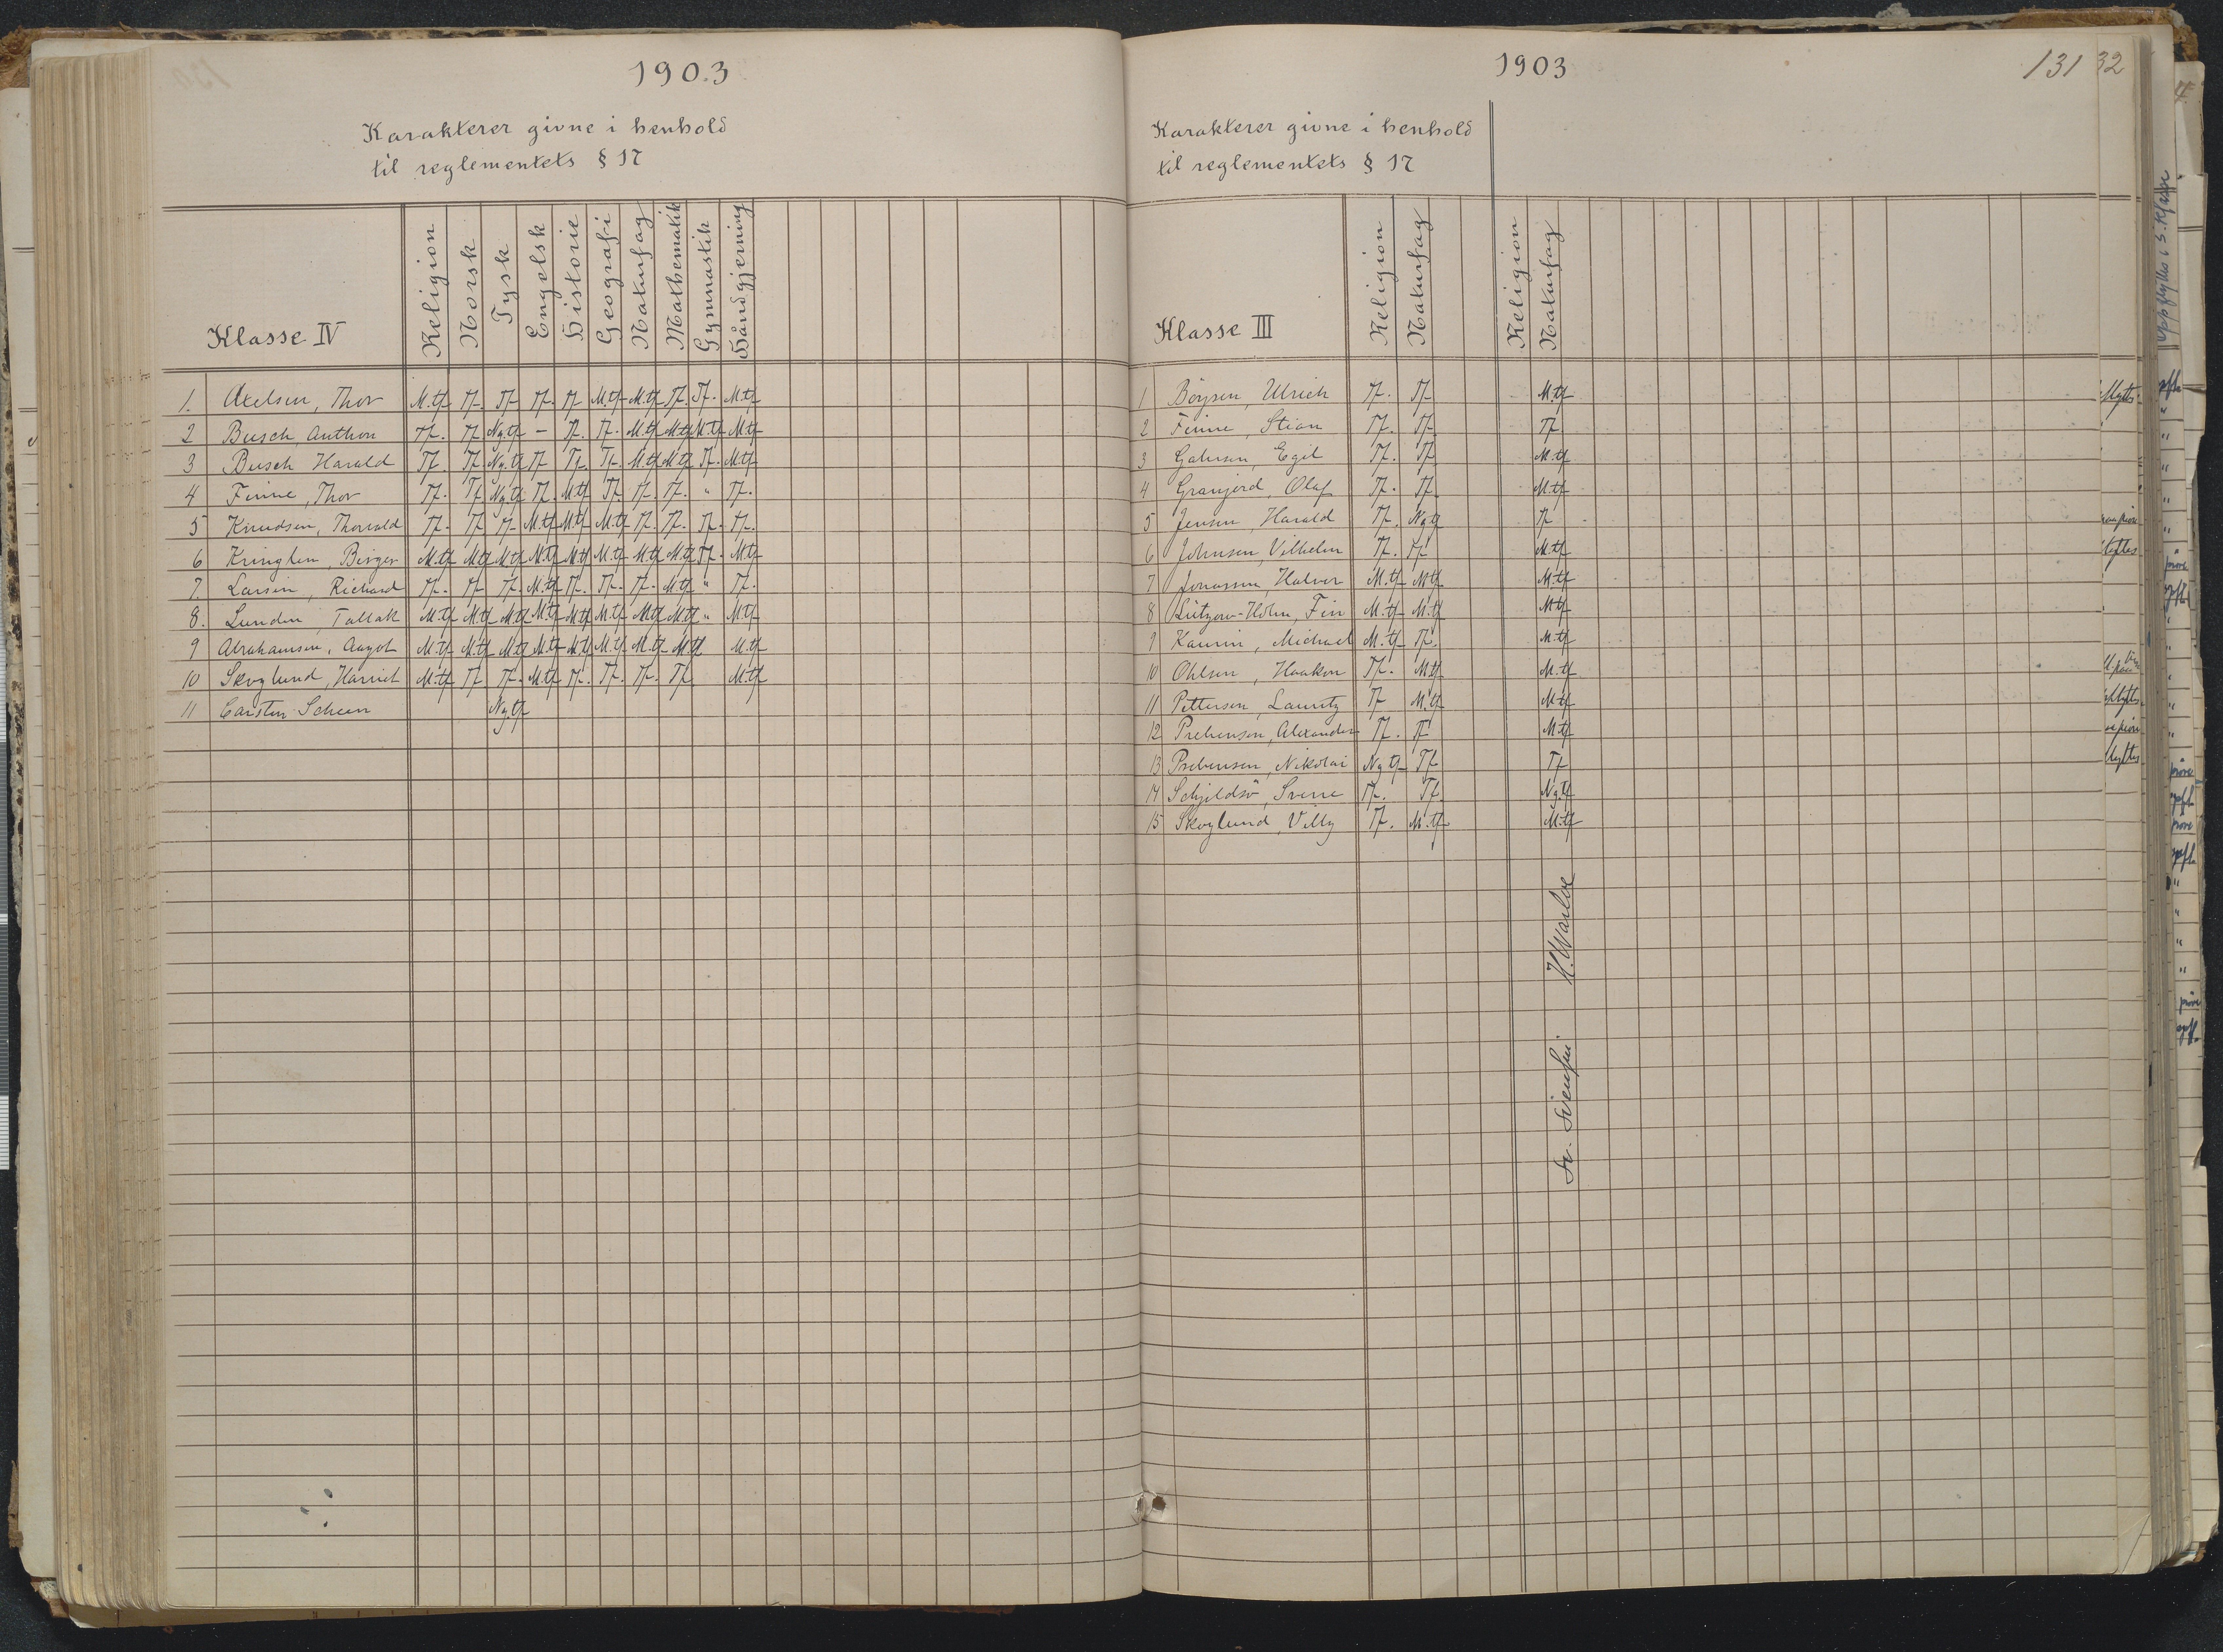 1903
Karakterer givne i henhold
til reglementets § 17
Klasse IV Religion Norsk Tysk Engelsk Historie Geografi Naturfag Mathematik Gymnastik Håndgjerning
1. Axelsen, Thor M.tf Tf. Tf Tf. Tf M.tf M.tf Tf. Tf. M.tf
2 Busch, Anthon Tf. Tf Ng.tf – Tf. Tf. M.tf M.tf M.tf M.tf
3 Busch Harald Tf. Tf. Ng.tf Tf Tf. Tf. M.tf M.tf Tf. M.tf
4 Finne, Thor Tf. Tf Ng.tf Tf. M.tf Tf Tf. Tf. " Tf.
5 Knudsen, Thorvald Tf. Tf Tf. M.tf M.tf M.tf Tf. Tf. Tf. Tf.
6 Kringlen, Birger M.tf M.tf M.tf M.tf M.tf M.tf M.tf M.tf Tf. M.tf
7. Larsen, Richard Tf. Tf Tf. M.tf Tf. Tf. Tf. M.tf " Tf.
8. Lunden, Tallak M.tf M.tf M.tf M.tf M.tf M.tf M.tf M.tf " M.tf
9 Abrahamsen, Aagot M.tf M.tf M.tf M.tf M.tf M.tf M.tf M.tf M.tf
10 Skoglund, Harriet M.tf Tf Tf. M.tf Tf. Tf. Tf. Tf M.tf
11 Carsten Scheen Ng.tf
1903
131
32
Karakterer givne i henhold
til reglementets § 17
Klasse III Religion Naturfag Religion Naturfag
1 Böysen, Ulrich Tf. Tf M.tf
2 Finne, Stian Tf. Tf Tf
3 Egil Tf. Tf M.tf
4 Granjord, Olaf Tf. Tf M.tf
5 Jensen, Harald Tf. Ng.tf Tf
6 Johnsen, Vilhelm Tf. Tf M.tf
7 Jonassen, Halvor M.tf M.tf M.tf
8 Lützow-Holm, Fin M.tf M.tf M.tf
9 Michael M.tf Tf. M.tf
10 Ohlsen, Haakon Tf. M.tf M.tf
11 Pettersen, Lauritz Tf M.tf M.tf
12 Prebensen, Alexander Tf. Tf M.tf
13 Prebensen, Nikolai Ng.tf Tf Tf
14 Schjeldsö, Sverre Tf. Tf Ng.tf
15 Skoglund, Villy Tf. M.tf M.tf